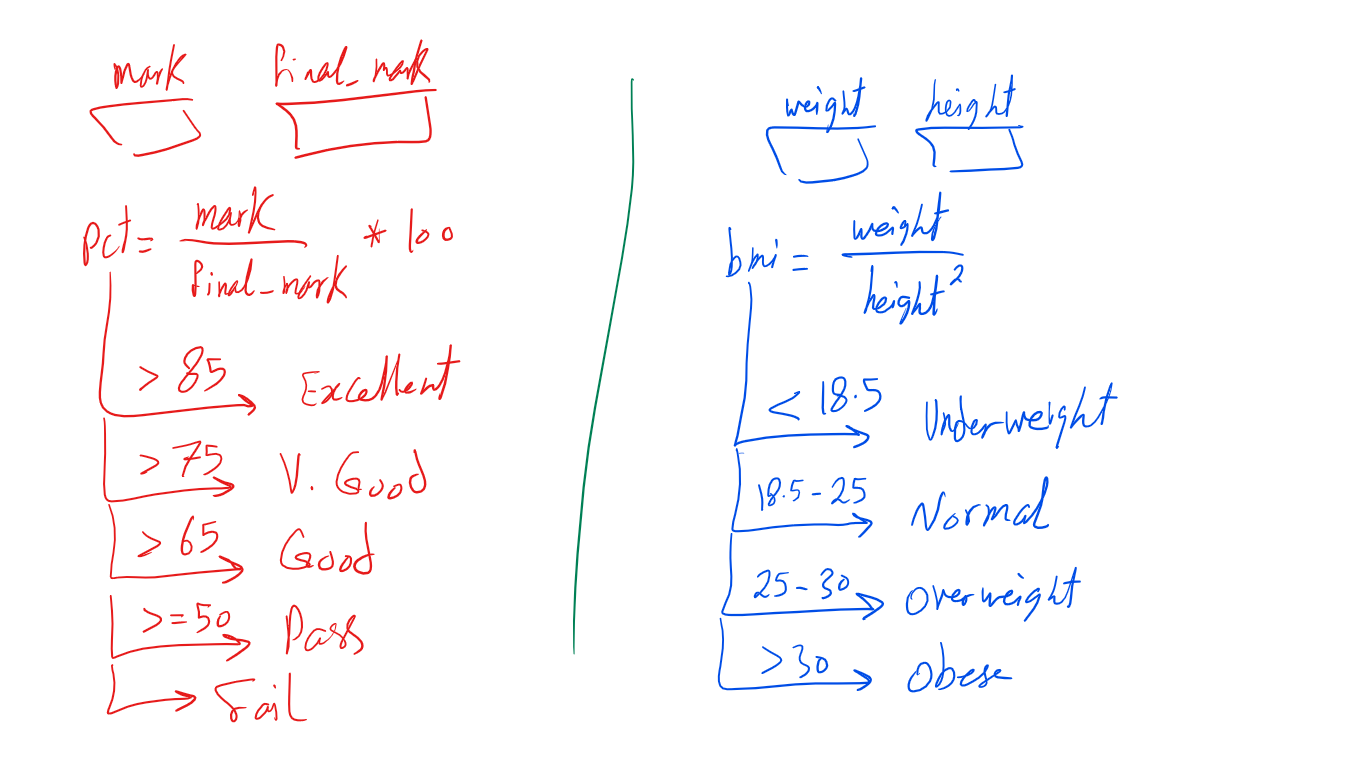 mark final_mark
pct = mark / final_mark * 100
> 85 Excellent
> 75 V. Good
> 65 Good
>= 50 Pass
Fail
weight height
bmi = weight / height²
< 18.5 Underweight
18.5 - 25 Normal
25 - 30 Overweight
> 30 Obese